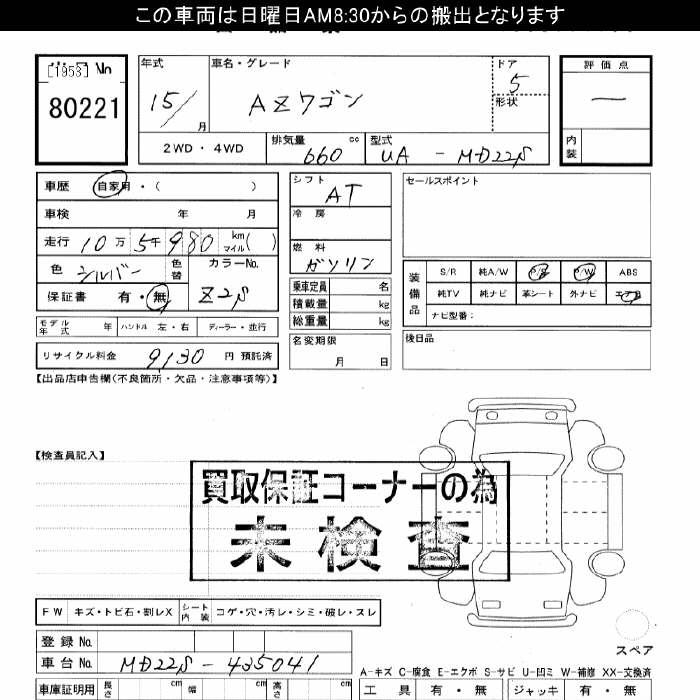 この車両は日曜日AM8:30からの搬出となります
[1953] No
80221
年式
15/
月
車名・グレード
AZワゴン
ドア
5
形状
評価点
—
内装
2WD・4WD
排気量
660 cc
型式
UA - MD22S
車歴 自家用・( )
車検 年 月
走行 10万5千980 km マイル( )
色 シルバー
色替
カラーNo.
Z2S
保証書 有・無
モデル年式 年 ハンドル 左・右 ディーラー・並行
リサイクル料金 9130 円 預託済
シフト
AT
冷房
燃料
ガソリン
乗車定員 名
積載量 kg
総重量 kg
名変期限
月 日
セールスポイント
装備品
S/R 純A/W P/S P/W ABS
純TV 純ナビ 革シート 外ナビ エアB
ナビ型番:
後日品
【出品店申告欄(不良箇所・欠品・注意事項等)】
【検査員記入】
買取保証コーナーの為
未検査
FW キズ・トビ石・割レX シート内装 コゲ・穴・汚レ・シミ・破レ・スレ
スペア
登録No.
車台No. MD22S-435041
A-キズ C-腐食 E-エクボ S-サビ U-凹ミ W-補修 XX-交換済
車庫証明用 長さ cm 幅 cm 高さ cm
工具 有・無 ジャッキ 有・無